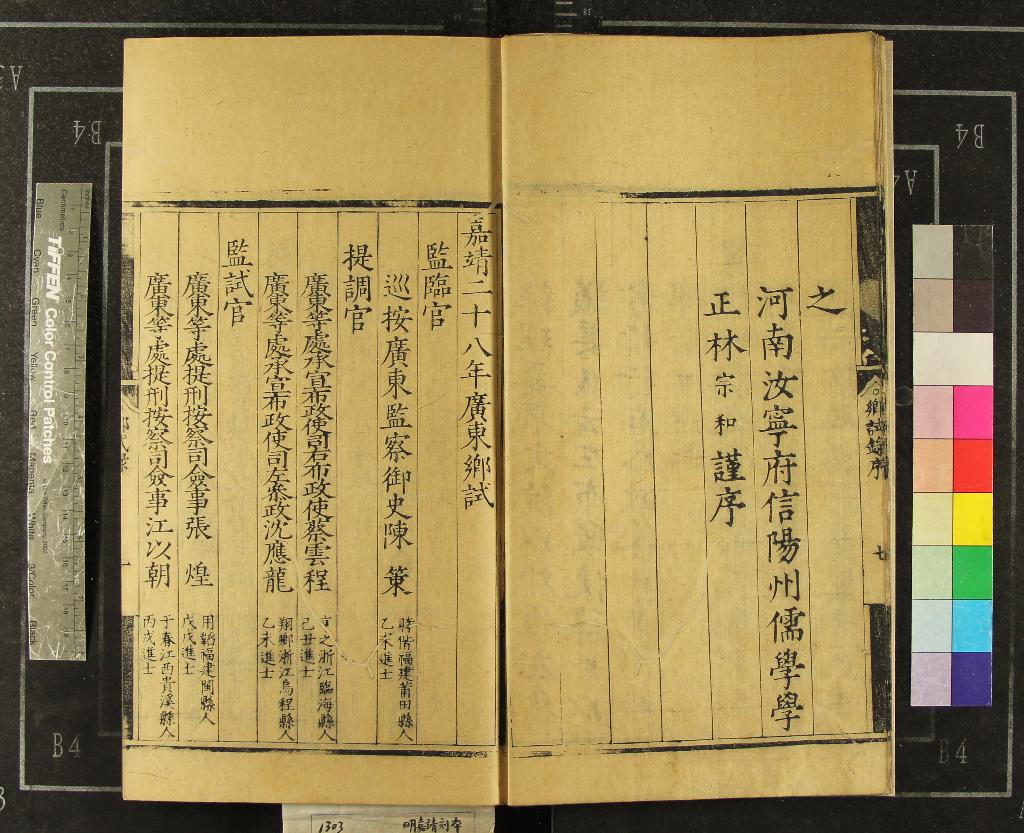 之
河南汝寧府信陽州儒學學
正林宗和謹序
鄉試錄序
七
嘉靖二十八年廣東鄉試
監臨官
巡按廣東監察御史陳䇿
時偕福建莆田縣人
乙未進士
提調官
廣東等處承宣布政使司右布政使蔡雲程
亨之浙江臨海縣人
己丑進士
廣東等處承宣布政使司左叅政沈應龍
翔卿浙江烏程縣人
乙未進士
監試官
廣東等處提刑按察司僉事張煌
用韜福建閩縣人
戊戌進士
廣東等處提刑按察司僉事江以朝
子春江西貴溪縣人
丙戌進士
一
1303
明嘉靖刻本
TIFFEN Color Control Patches
Centimetres
Blue
Cyan
Green
Yellow
Red
Magenta
White
3/Color
Black
A3
B4
B4
A4
B4
B4